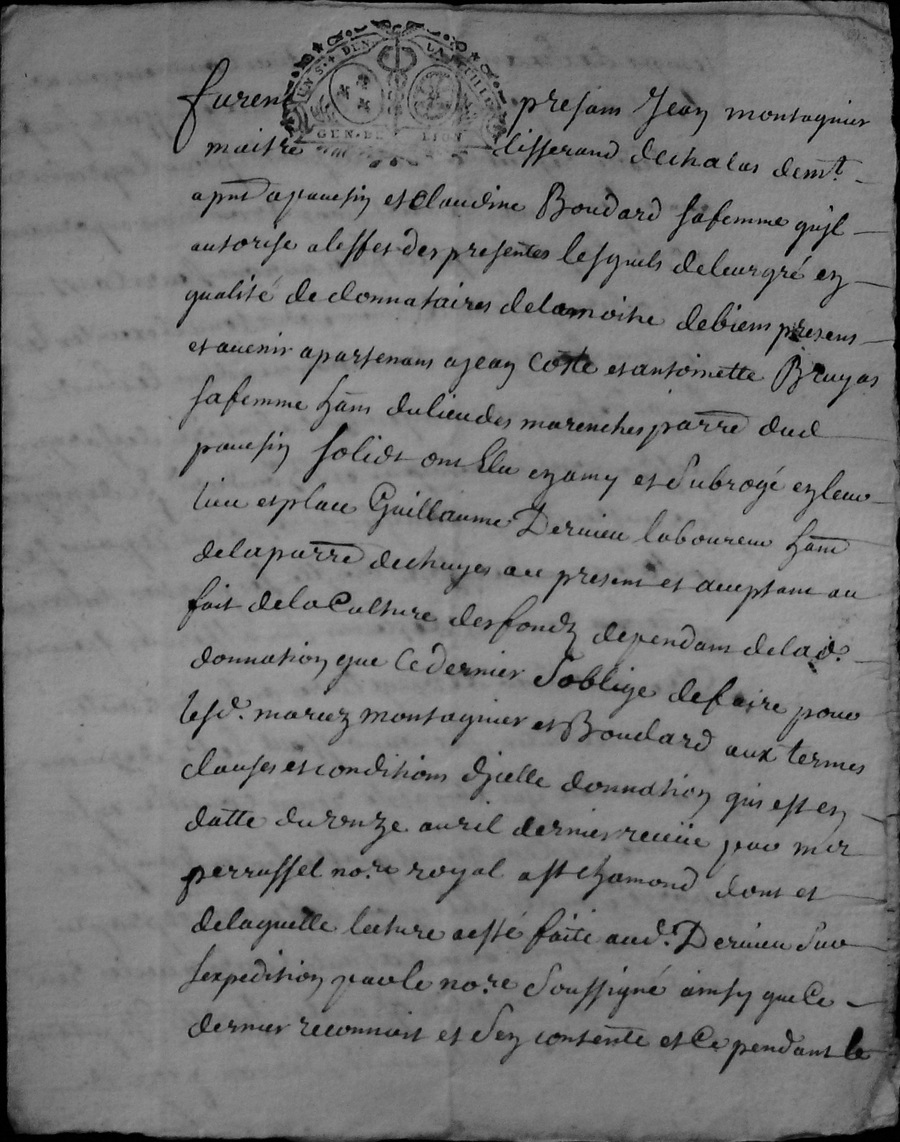 UN S. + DEN. LA FEUILLE
GEN. DE LION
furent presans Jean montagnier
maitre tisserand de chalas demt.
apnt apavesin et Claudine Boudard sa femme qu'jl
autorise a leffet des presentes lesquels de leur gré en
qualité de donnataires de la moitie de biens presens
et avenir apartenans a jean Coste et antoinette Bruyas
sa femme hans du lieu des marenches parre dud
pavesin solidt ont Elu en amy et subrogé en leur
lieu et place Guillaume Dervieu laboureur han
de la parre de chuyes icy present et acceptant au
fait de la Culture des fondz dependans de lad.
donnation que Ce dernier s'oblige de faire pour
lesd. mariez montagnier et Boudard aux termes
clauses et conditions d'jcelle donnation qui est en
datte du onze avril dernier reciüe par mer
perrussel nore royal a st chamond dont et
de laquelle lecture a esté faite aud. Dervieu sur
lexpedition par le nore soussigné ainsy que Ce
dernier reconnoit et s'en contente et Ce pendant le